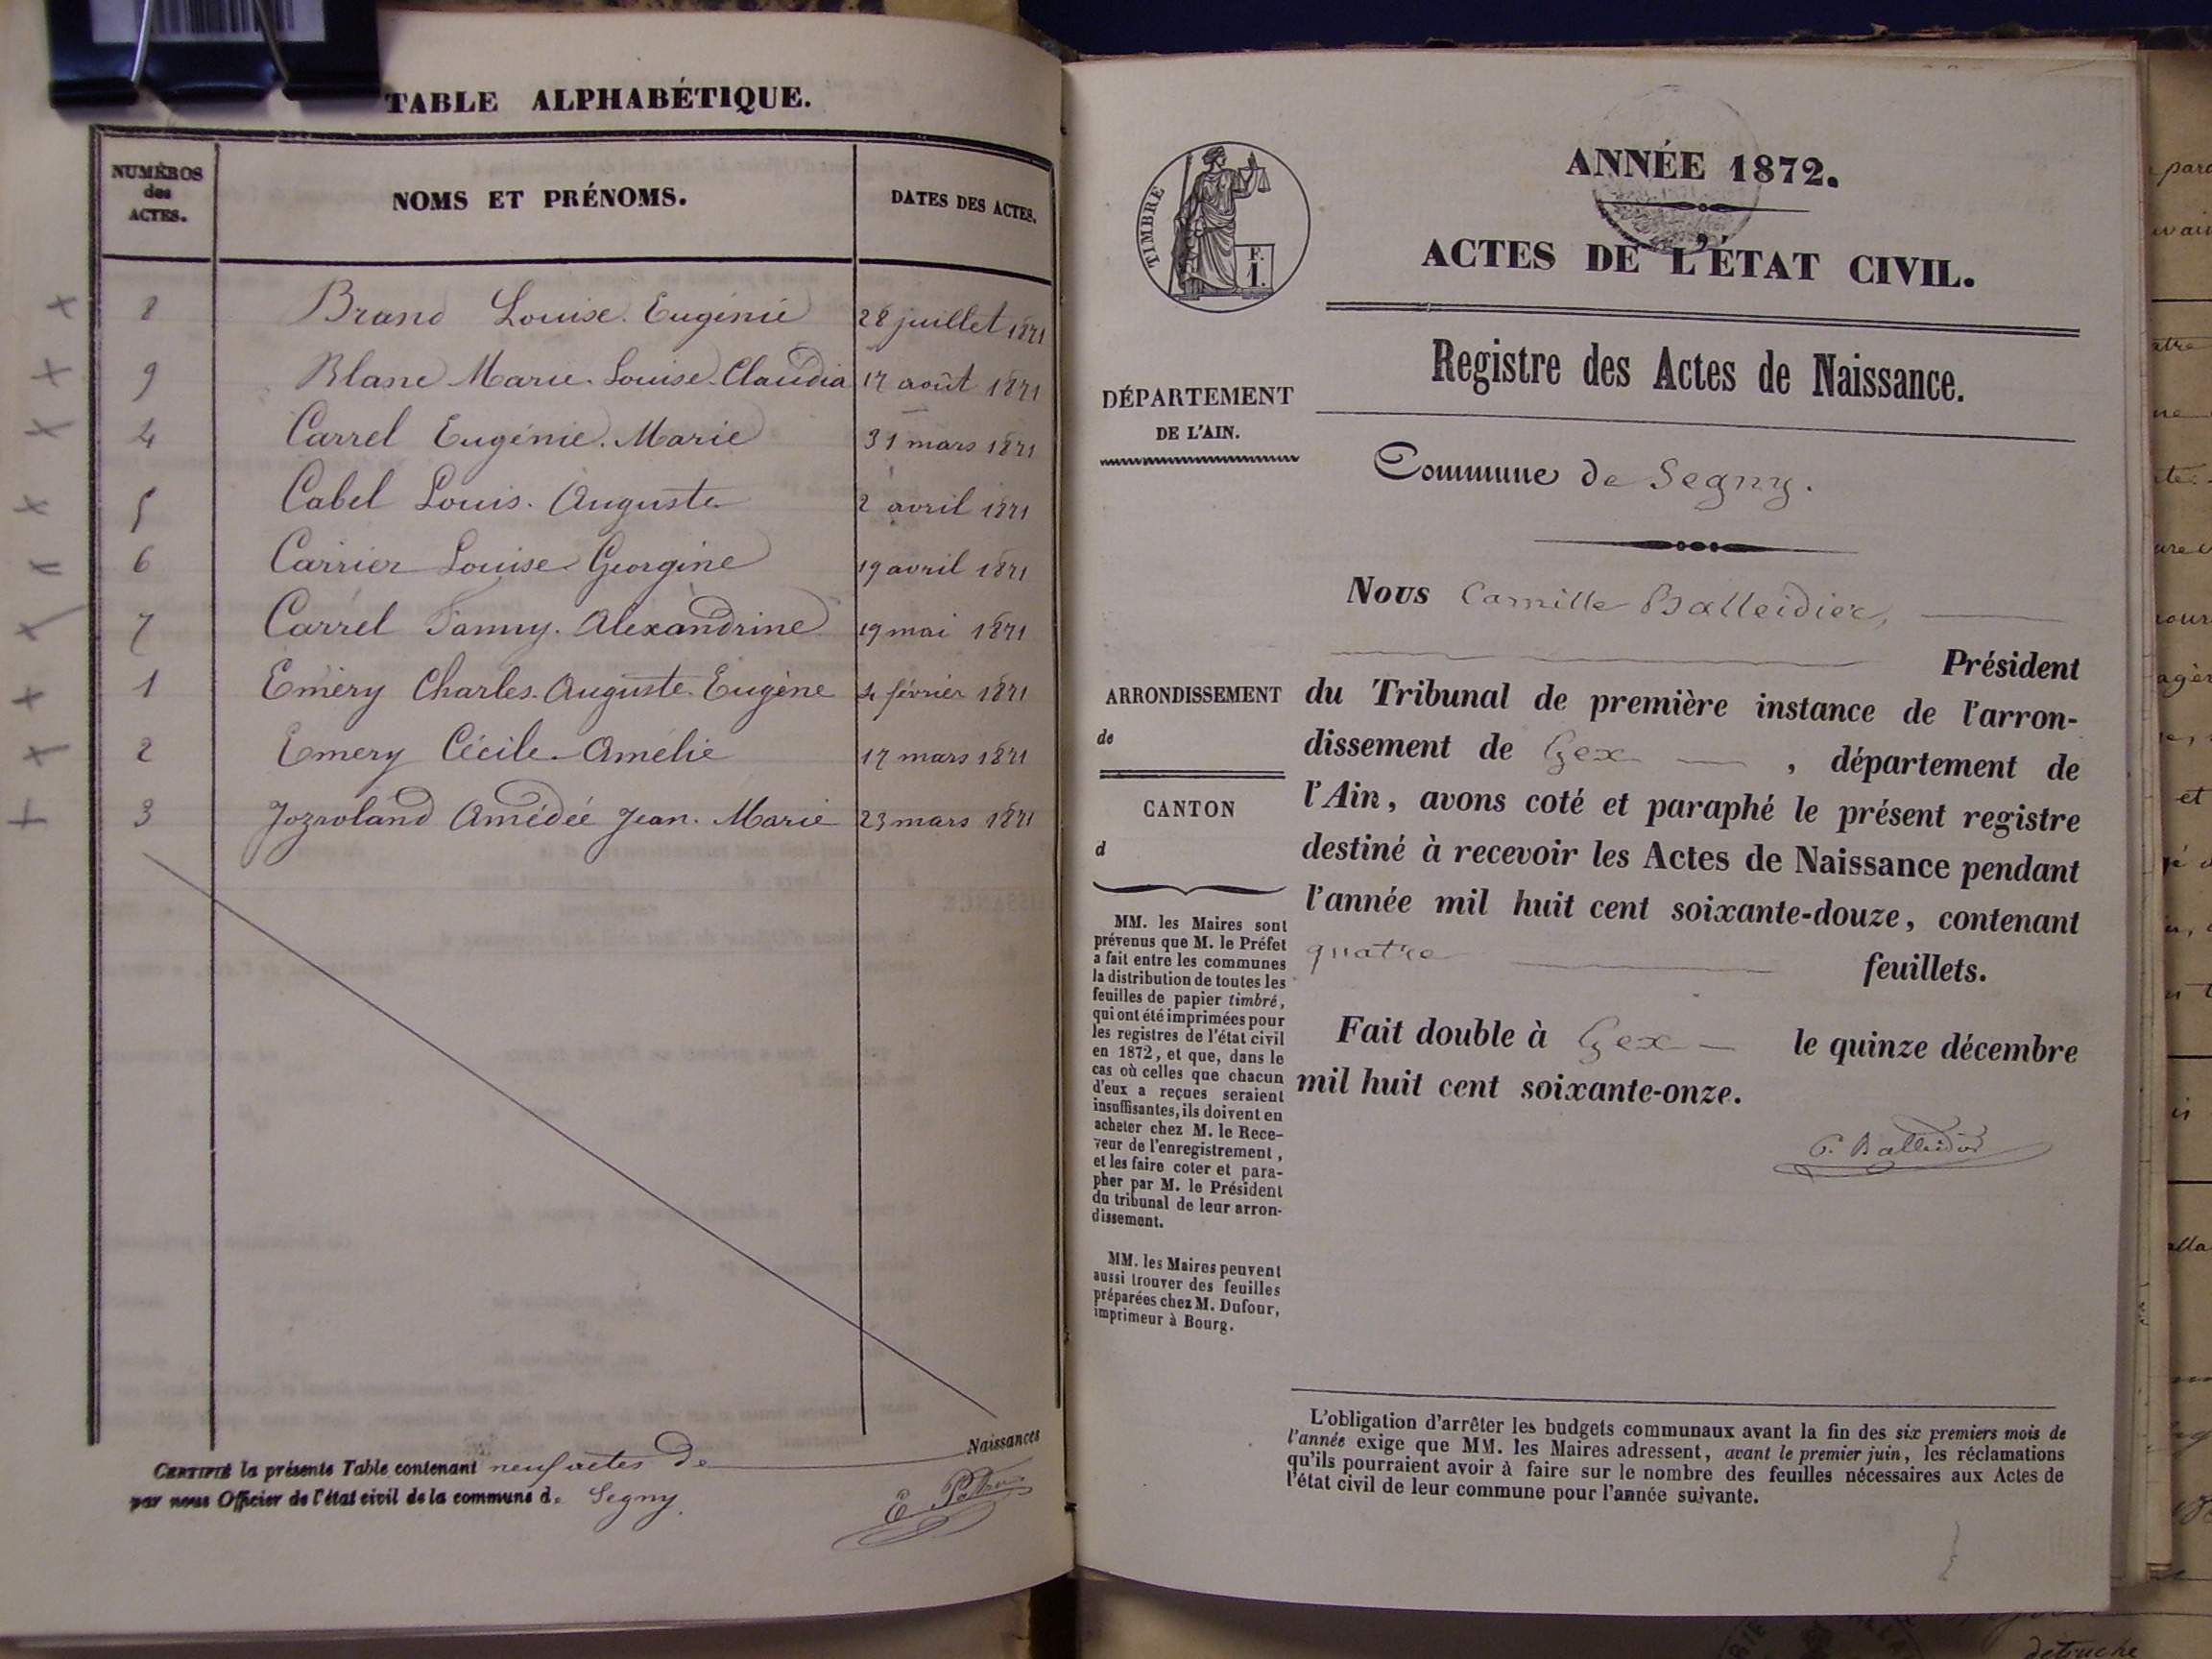 TABLE ALPHABÉTIQUE.
NUMÉROS
des
ACTES.
NOMS ET PRÉNOMS.
DATES DES ACTES.
8 Brand Louise Eugénie 28 juillet 1871
9 Blanc Marie Louise Claudia 17 août 1871
4 Carrel Eugénie Marie 31 mars 1871
5 Cabel Louis Auguste 2 avril 1871
6 Carrier Louise Georgine 19 avril 1871
7 Carrel Fanny Alexandrine 19 mai 1871
1 Emery Charles Auguste Eugène 4 février 1871
2 Emery Cécile Amélie 17 mars 1871
3 Amédée Jean Marie 23 mars 1871
CERTIFIÉ la présente Table contenant neuf actes de Naissances
par nous Officier de l'état civil de la commune de Segny.
TIMBRE
F.
1.
ANNÉE 1872.
ACTES DE L'ÉTAT CIVIL.
Registre des Actes de Naissance.
DÉPARTEMENT
DE L'AIN.
Commune de Segny.
Nous Camille Balleidier,
Président
du Tribunal de première instance de l'arron-
dissement de Gex, département de
l'Ain, avons coté et paraphé le présent registre
destiné à recevoir les Actes de Naissance pendant
l'année mil huit cent soixante-douze, contenant
quatre feuillets.
Fait double à Gex le quinze décembre
mil huit cent soixante-onze.
C. Balleidier
ARRONDISSEMENT
de
CANTON
d
MM. les Maires sont
prévenus que M. le Préfet
a fait entre les communes
la distribution de toutes les
feuilles de papier timbré,
qui ont été imprimées pour
les registres de l'état civil
en 1872, et que, dans le
cas où celles que chacun
d'eux a reçues seraient
insuffisantes, ils doivent en
acheter chez M. le Rece-
veur de l'enregistrement,
et les faire coter et para-
pher par M. le Président
du tribunal de leur arron-
dissement.
MM. les Maires peuvent
aussi trouver des feuilles
préparées chez M. Dufour,
imprimeur à Bourg.
L'obligation d'arrêter les budgets communaux avant la fin des six premiers mois de
l'année exige que MM. les Maires adressent, avant le premier juin, les réclamations
qu'ils pourraient avoir à faire sur le nombre des feuilles nécessaires aux Actes de
l'état civil de leur commune pour l'année suivante.